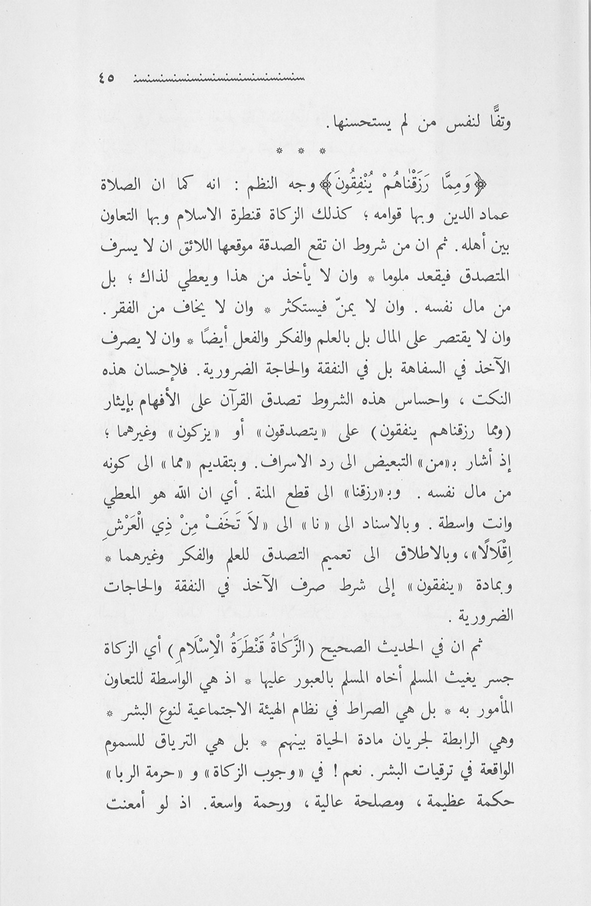 ٤٥
وتفًّا لنفس من لم يستحسنها.
* * *
﴿وَمِمَّا رَزَقْنَاهُمْ يُنْفِقُونَ﴾ وجه النظم : انه كما ان الصلاة
عماد الدين وبها قوامه ؛ كذلك الزكاة قنطرة الاسلام وبها التعاون
بين أهله. ثم ان من شروط ان تقع الصدقة موقعها اللائق ان لا يسرف
المتصدق فيقعد ملوما * وان لا يأخذ من هذا ويعطي لذاك ؛ بل
من مال نفسه . وان لا يمنّ فيستكثر * وان لا يخاف من الفقر .
وان لا يقتصر على المال بل بالعلم والفكر والفعل أيضًا * وان لا يصرف
الآخذ في السفاهة بل في النفقة والحاجة الضرورية. فلإحسان هذه
النكت ، واحساس هذه الشروط تصدق القرآن على الأفهام بإيثار
(ومما رزقناهم ينفقون) على «يتصدقون» أو «يزكون» وغيرهما ؛
إذ أشار بـ«من» التبعيض الى رد الاسراف. وبتقديم «مما» الى كونه
من مال نفسه . وبـ«رزقنا» الى قطع المنة. أي ان الله هو المعطي
وانت واسطة . وبالاسناد الى «نا» الى «لاَ تَخَفْ مِنْ ذِي الْعَرْشِ
اِقْلَالًا»، وبالاطلاق الى تعميم التصدق للعلم والفكر وغيرهما *
وبمادة «ينفقون» إلى شرط صرف الآخذ في النفقة والحاجات
الضرورية .
ثم ان في الحديث الصحيح (الزَّكَاةُ قَنْطَرَةُ الْاِسْلَامِ) أي الزكاة
جسر يغيث المسلم أخاه المسلم بالعبور عليها * اذ هي الواسطة للتعاون
المأمور به * بل هي الصراط في نظام الهيئة الاجتماعية لنوع البشر *
وهي الرابطة لجريان مادة الحياة بينهم * بل هي الترياق للسموم
الواقعة في ترقيات البشر. نعم ! في «وجوب الزكاة» و «حرمة الربا»
حكمة عظيمة، ومصلحة عالية، ورحمة واسعة. اذ لو أمعنت